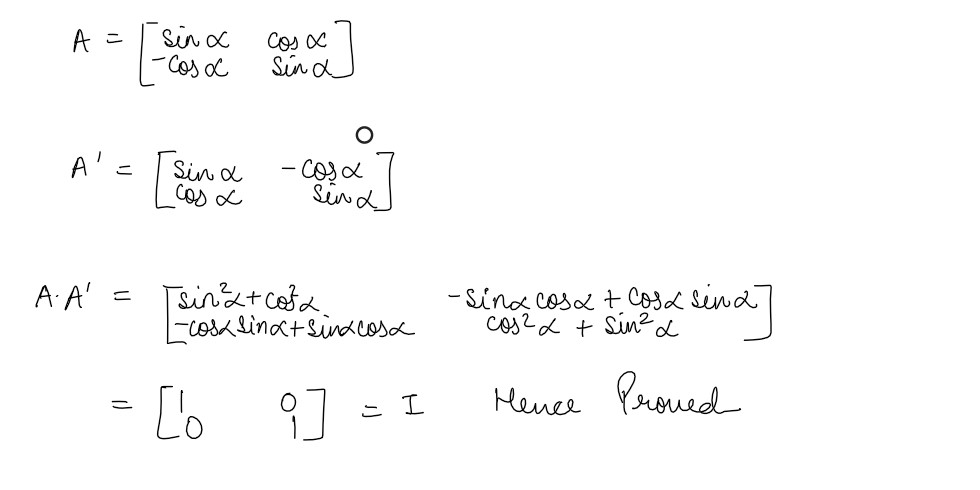 A = [ sin α   cos α
-cos α   sin α ]
A' = [ sin α   - cos α
cos α   sin α ]
A·A' = [ sin²α + cos²α   -sinα cosα + cosα sinα
-cosα sinα + sinα cosα   cos²α + sin²α ]
= [ 1   0
0   1 ] = I   Hence Proved